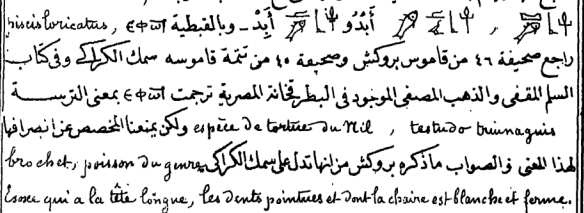 أَبِدُ ـ وبالقبطية ⲉⲫⲱⲧ , piscis loricatus أَبْدُو
راجع صحيفة ٤٦ من قاموس بروكش وصحيفة ٤٥ من تتمة قاموسه سمك الكراكى وفى كتاب
السلم المقفى والذهب المصفى الموجود فى البطرقخانة المصرية ترجمت ⲉⲫⲱⲧ بمعنى الترسة
testudo triunguis , espèce de tortue du Nil ولكن يمنعنا المخصص عن انصرافها
لهذا المعنى والصواب ماذكره بروكش من انها تدل على سمك الكراكى brochet, poisson du genre
Esoce qui a la tête longue, les dents pointues et dont la chaire est blanche et ferme.